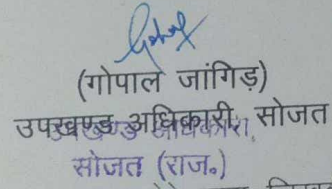 (गोपाल जांगिड़)
उपखण्ड अधिकारी, सोजत
उपखण्ड अधिकारी,
सोजत (राज०)